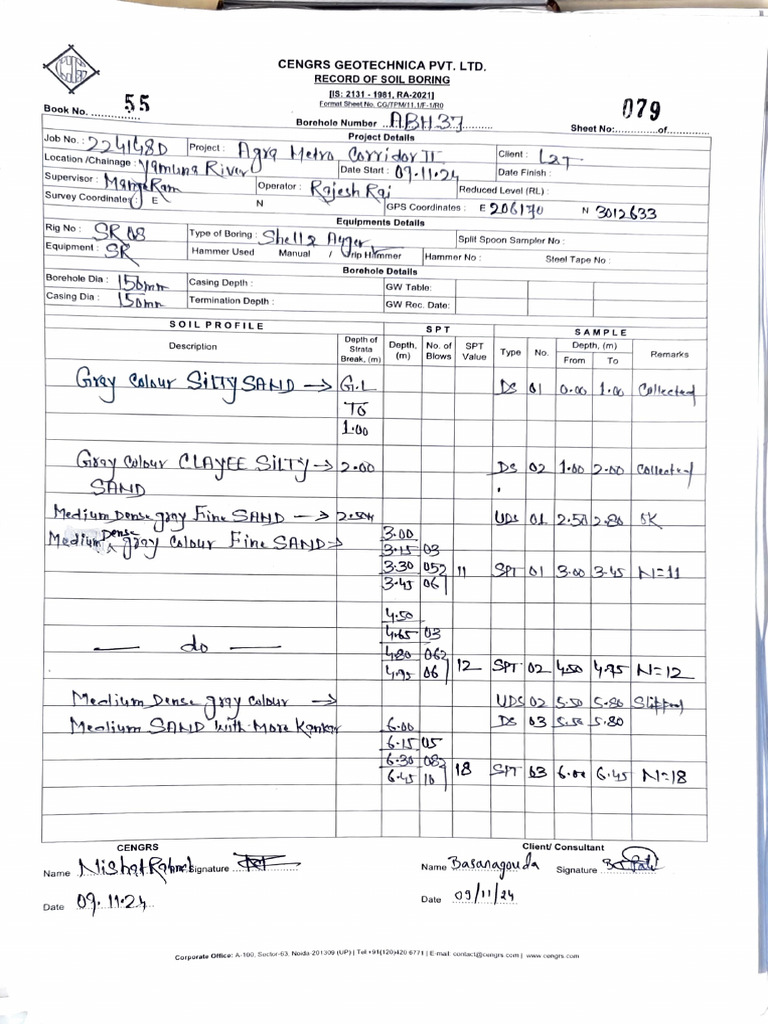 CENGRS GEOTECHNICA PVT. LTD.
RECORD OF SOIL BORING
[IS: 2131 - 1981, RA-2021]
Format Sheet No. CG/TPM/11.1/F-1/R0
Book No. 55
Borehole Number ABH37
Sheet No: 079 of
Project Details
Job No. : 224148D Project : Agra Metro Corridor II Client : L&T
Location /Chainage : Yamuna River Date Start : 09.11.24 Date Finish :
Supervisor : Mange Ram Operator : Rajesh Rai Reduced Level (RL) :
Survey Coordinates: E N GPS Coordinates : E 206170 N 3012633
Equipments Details
Rig No : SR 08 Type of Boring : Shell & Auger Split Spoon Sampler No :
Equipment : SR Hammer Used Manual / Trip Hammer Hammer No : Steel Tape No :
Borehole Details
Borehole Dia : 150mm Casing Depth : GW Table:
Casing Dia : 150mm Termination Depth : GW Rec. Date:
SOIL PROFILE SPT SAMPLE
Description Depth of Strata Break, (m) Depth, (m) No. of Blows SPT Value Type No. Depth, (m) From To Remarks
Gray colour SILTY SAND → G.L DS 01 0.00 1.00 Collected
TO
1.00
Gray colour CLAYEE SILTY → 2.00 DS 02 1.00 2.00 Collected
SAND
Medium Dense gray Fine SAND → UDS 01 2.50 2.80 OK
Medium Dense gray colour Fine SAND → 3.00
3.15 03
3.30 05 11 SPT 01 3.00 3.45 N=11
3.45 06
4.50
— do — 4.65 03
4.80 06
4.95 06 12 SPT 02 4.50 4.95 N=12
Medium Dense gray colour → UDS 02 5.50 5.80 Slipped
Medium SAND with More Kankar 6.00 DS 03 5.50 5.80
6.15 05
6.30 08 18 SPT 03 6.00 6.45 N=18
6.45 10
CENGRS Client/ Consultant
Name Signature Name Basanagouda Signature
Date 09.11.24 Date 09/11/24
Corporate Office: A-100, Sector-63, Noida-201309 (UP) | Tel +91(120)420 6771 | E-mail: contact@cengrs.com | www.cengrs.com